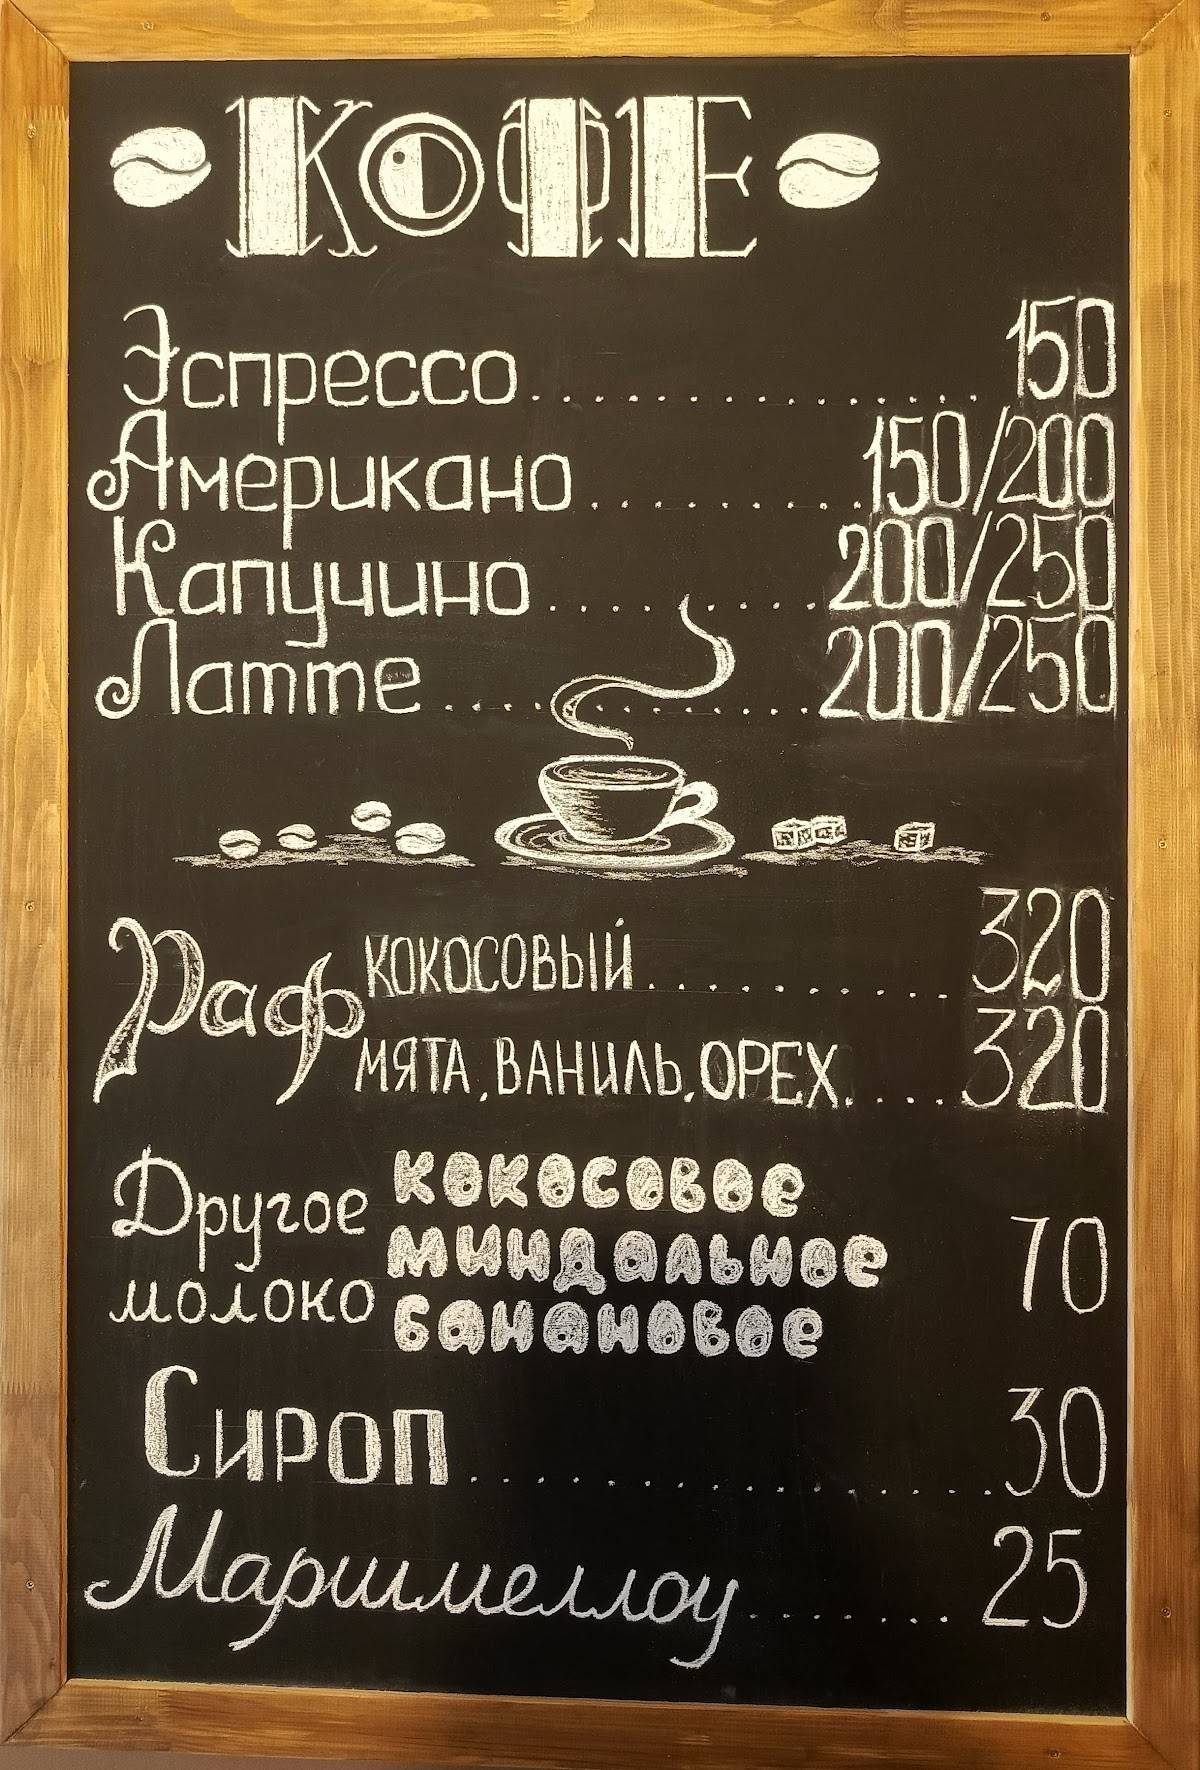 КОФЕ
Эспрессо................150
Американо............150/200
Капучино..........200/250
Латте..............200/250
Раф
КОКОСОВЫЙ............320
МЯТА, ВАНИЛЬ, ОРЕХ.....320
Другое
молоко
кокосовое
миндальное
банановое
70
Сироп................30
Маршмеллоу.........25